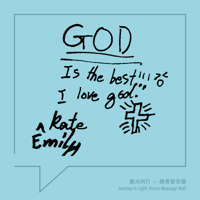 GOD
Is the best!!!
I love god.
^ Kate
Emily
Journey in Light: Vision Message Wall